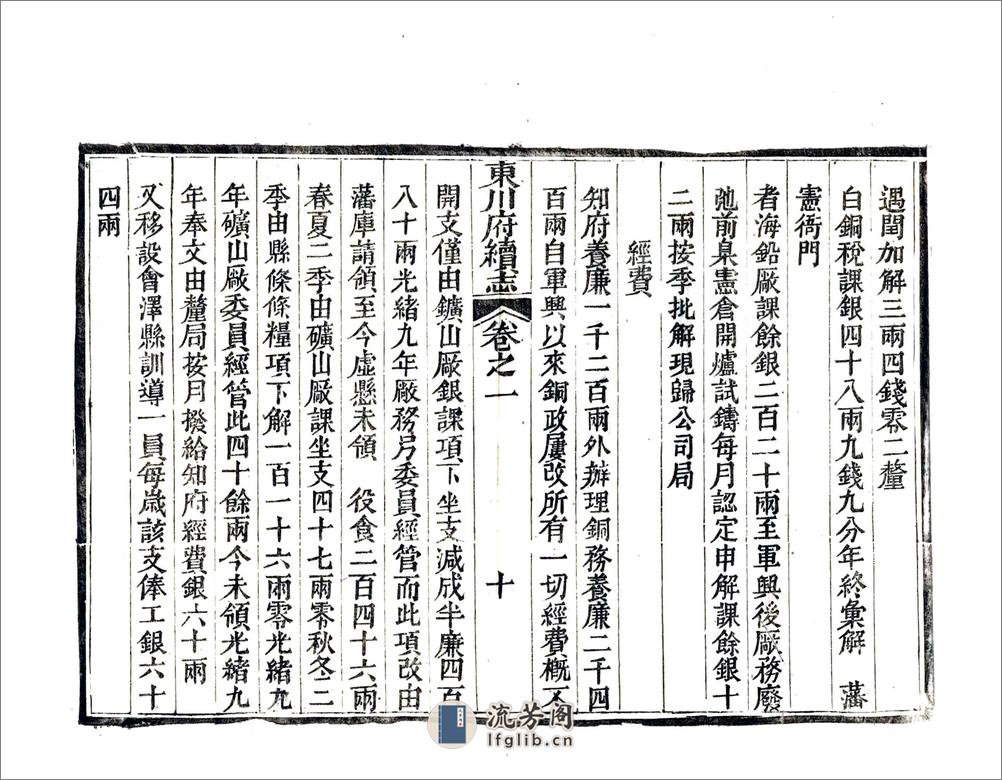 遇閏加解三兩四錢零二釐
白銅稅課銀四十八兩九錢九分年終彙解　藩
憲衙門
者海鉛厰課餘銀二百二十兩至軍興後厰務廢
弛前臬憲倉開爐試鑄每月認定申解課餘銀十
二兩按季批解現歸公司局
經費
知府養廉一千二百兩外辦理銅務養廉二千四
百兩自軍興以來銅政屢改所有一切經費概不
東川府續志　卷之一　十
開支僅由鑛山厰銀課項下坐支減成半廉四百
八十兩光緒九年厰務另委員經管而此項改由
藩庫請領至今虛懸未領　役食二百四十六兩
春夏二季由礦山厰課坐支四十七兩零秋冬二
季由縣條條糧項下解一百一十六兩零光緒九
年礦山厰委員經管此四十餘兩今未領光緒九
年奉文由釐局按月撥給知府經費銀六十兩
又移設會澤縣訓導一員每歲該支俸工銀六十
四兩
流芳閣
lfglib.cn